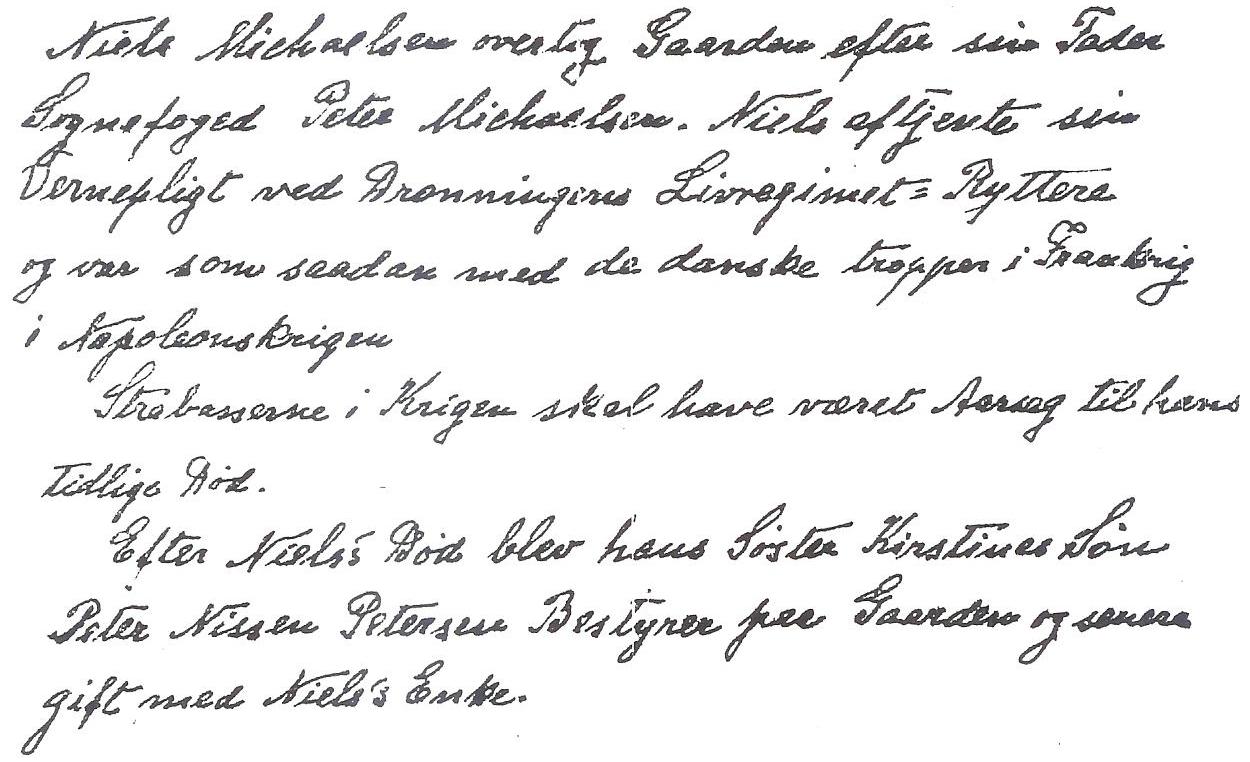 Niels Michaelsen overtog Gaarden efter sin Fader
Sognefoged Peter Michaelsen. Niels aftjente sin
Vernepligt ved Dronningens Livregimet = Ryttere
og var som saadan med de danske tropper i Frankrig
i Napoleonskrigen
Strabasserne i Krigen skal have været Aarsag til hans
tidlige Død.
Efter Niels's Død blev hans Søster Kirstines Søn
Peter Nissen Petersen Bestyrer paa Gaarden og senere
gift med Niels's Enke.